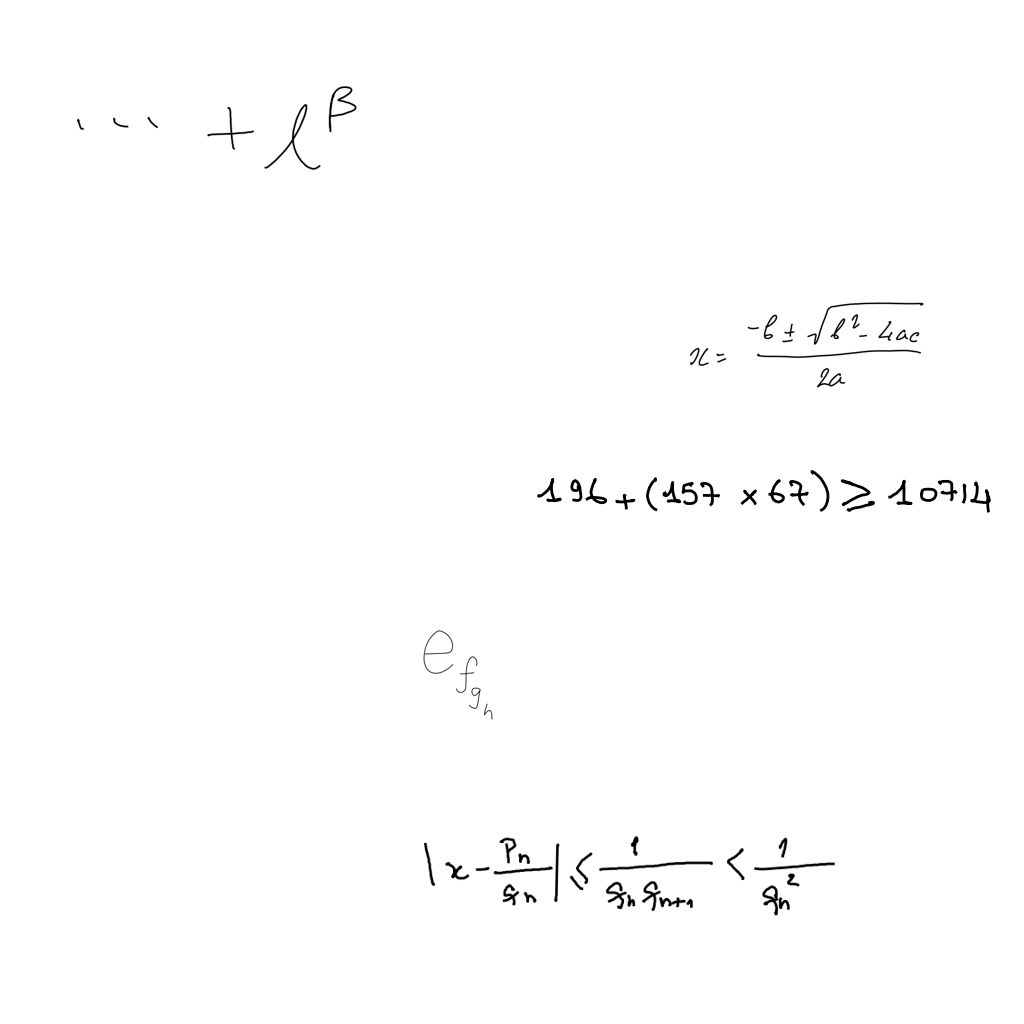 $\cdots + l^{\beta}$
$x = \frac{-b \pm \sqrt{b^2 - 4ac}}{2a}$
$196 + (157 \times 67) \geq 10714$
$e_{f_{g_h}}$
$\left| x - \frac{p_n}{q_n} \right| \leq \frac{1}{q_n q_{n+1}} < \frac{1}{q_n^2}$